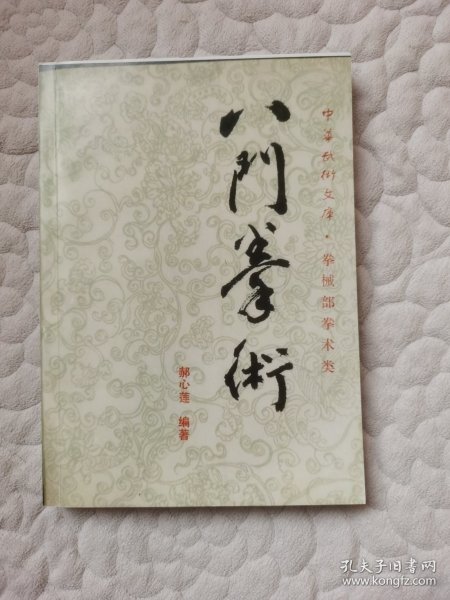 中华武術文库·拳械部拳术类
八門拳術
郝心莲 编著
孔夫子旧书网
www.kongfz.com